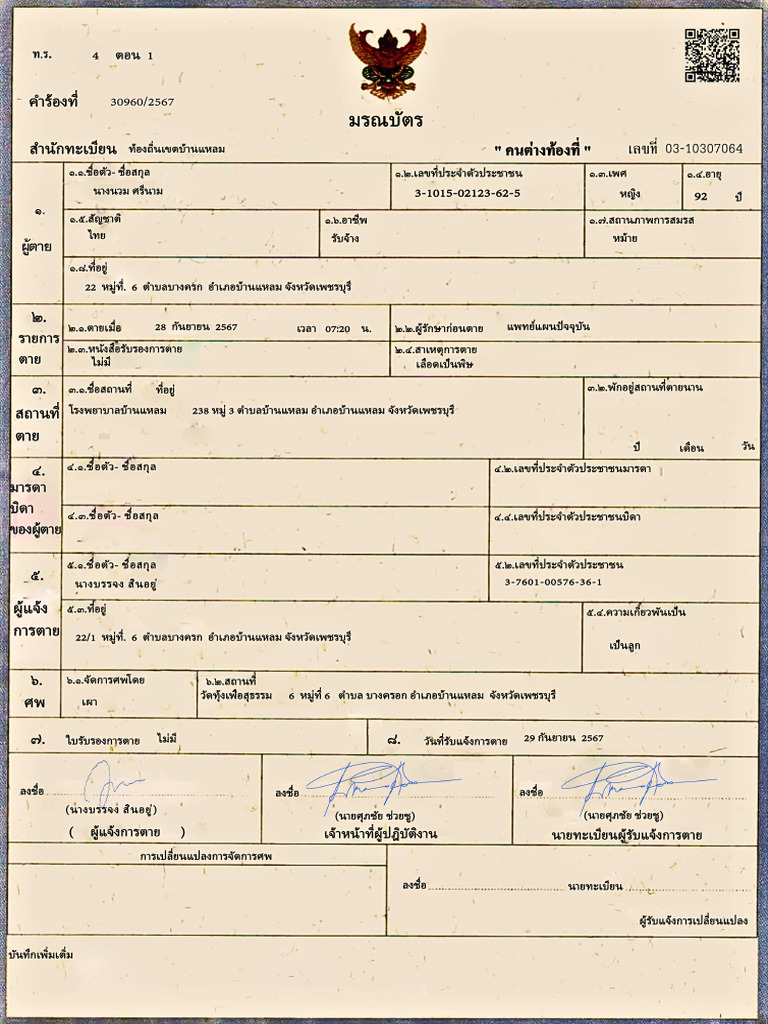 ท.ร. 4 ตอน 1
คำร้องที่ 30960/2567
มรณบัตร
สำนักทะเบียน ท้องถิ่นเขตบ้านแหลม " คนต่างท้องที่ " เลขที่ 03-10307064
๑. ผู้ตาย
๑.๑.ชื่อตัว- ชื่อสกุล ๑.๒.เลขที่ประจำตัวประชาชน ๑.๓.เพศ ๑.๔.อายุ
นางนวม ศรีนาม 3-1015-02123-62-5 หญิง 92 ปี
๑.๕.สัญชาติ ๑.๖.อาชีพ ๑.๗.สถานภาพการสมรส
ไทย รับจ้าง หม้าย
๑.๘.ที่อยู่
22 หมู่ที่. 6 ตำบลบางครก อำเภอบ้านแหลม จังหวัดเพชรบุรี
๒. รายการตาย
๒.๑.ตายเมื่อ 28 กันยายน 2567 เวลา 07:20 น. ๒.๒.ผู้รักษาก่อนตาย แพทย์แผนปัจจุบัน
๒.๓.หนังสือรับรองการตาย ๒.๔.สาเหตุการตาย
ไม่มี เลือดเป็นพิษ
๓. สถานที่ตาย
๓.๑.ชื่อสถานที่ ที่อยู่ ๓.๒.พักอยู่สถานที่ตายนาน
โรงพยาบาลบ้านแหลม 238 หมู่ 3 ตำบลบ้านแหลม อำเภอบ้านแหลม จังหวัดเพชรบุรี
ปี เดือน วัน
๔. มารดา บิดา ของผู้ตาย
๔.๑.ชื่อตัว- ชื่อสกุล ๔.๒.เลขที่ประจำตัวประชาชนมารดา
๔.๓.ชื่อตัว- ชื่อสกุล ๔.๔.เลขที่ประจำตัวประชาชนบิดา
๕. ผู้แจ้งการตาย
๕.๑.ชื่อตัว- ชื่อสกุล ๕.๒.เลขที่ประจำตัวประชาชน
นางบรรจง สินอยู่ 3-7601-00576-36-1
๕.๓.ที่อยู่ ๕.๔.ความเกี่ยวพันเป็น
22/1 หมู่ที่. 6 ตำบลบางครก อำเภอบ้านแหลม จังหวัดเพชรบุรี เป็นลูก
๖. ศพ
๖.๑.จัดการศพโดย ๖.๒.สถานที่
เผา วัดทุ้งเฟือสุธรรม 6 หมู่ที่ 6 ตำบล บางครอก อำเภอบ้านแหลม จังหวัดเพชรบุรี
๗. ใบรับรองการตาย ไม่มี ๘. วันที่รับแจ้งการตาย 29 กันยายน 2567
ลงชื่อ ลงชื่อ ลงชื่อ
(นางบรรจง สินอยู่) (นายศุภชัย ช่วยชู) (นายศุภชัย ช่วยชู)
( ผู้แจ้งการตาย ) เจ้าหน้าที่ผู้ปฏิบัติงาน นายทะเบียนผู้รับแจ้งการตาย
การเปลี่ยนแปลงการจัดการศพ
ลงชื่อ นายทะเบียน
ผู้รับแจ้งการเปลี่ยนแปลง
บันทึกเพิ่มเติ่ม